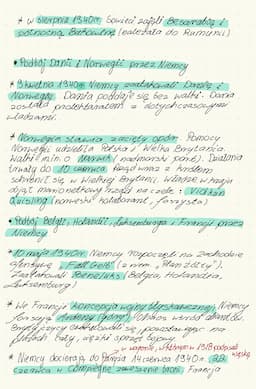 * w sierpniu 1940r. Sowieci zajęli Besarabię i
północną Bukowinę (należała do Rumunii)
• Podbój Danii i Norwegii przez Niemcy
* 9 kwietnia 1940r. Niemcy zaatakowali Danię i
Norwegię. Dania poddaje się bez walki. Dania
została protektoratem z dotychczasowymi
władzami.
* Norwegia stawia zacięty opór. Pomocy
Norwegii udzieliła Polska i Wielka Brytania.
Walki m.in. o Narwik (nadmorski port). Działania
trwały do 10 czerwca. Rząd wraz z królem
schronił się w Wielkiej Brytanii. Władzę w kraju
objął marionetkowy rząd na czele: Vidkun
Quisling (norweski kolaborant, faszysta)
• Podbój Belgii, Holandii, Luksemburga i Francji przez
Niemcy
* 10 maja 1940r. Niemcy rozpoczęli na zachodzie
ofensywę "Fall Gelb" (z niem. "Plan żółty").
Zaatakowali Beneluks (Belgia, Holandia,
Luksemburg)
* We Francji koncepcja wojny błyskawicznej. Niemcy
forsują Ardeny
Brytyjczycy ewakuowali się, pozostawiając na
plażach broń, ciężki sprzęt bojowy.
w wagonie, w którym w 1918 podpisali
klęskę
* Niemcy docierają do Paryża 14 czerwca 1940r. 22
czerwca w Compiègne zawieszenie broni. Francja